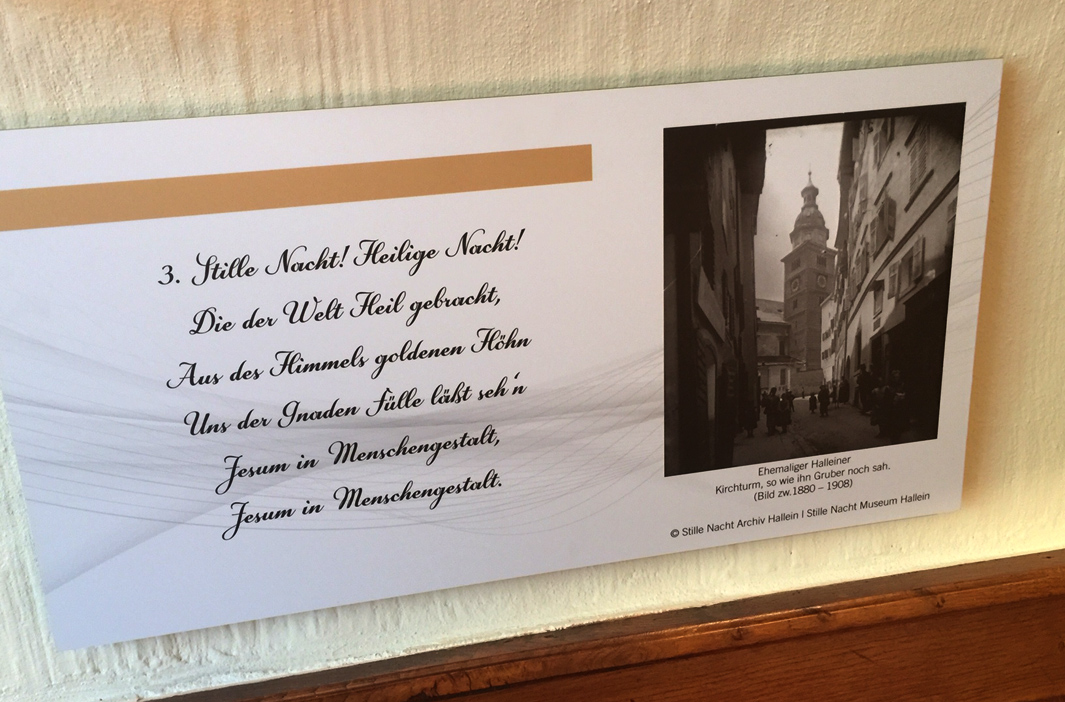 3. Stille Nacht! Heilige Nacht!
Die der Welt Heil gebracht,
Aus des Himmels goldenen Höhn
Uns der Gnaden Fülle läßt seh'n
Jesum in Menschengestalt,
Jesum in Menschengestalt.
Ehemaliger Halleiner
Kirchturm, so wie ihn Gruber noch sah.
(Bild zw.1880 – 1908)
© Stille Nacht Archiv Hallein | Stille Nacht Museum Hallein